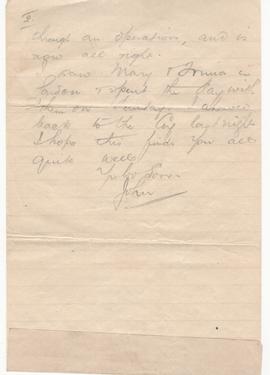 2
though an operation, and is
now all right.
I saw Mary & in
London & spent the day with
them on Sunday, arrived
back to the last night
I hope this finds you all
quite well
John